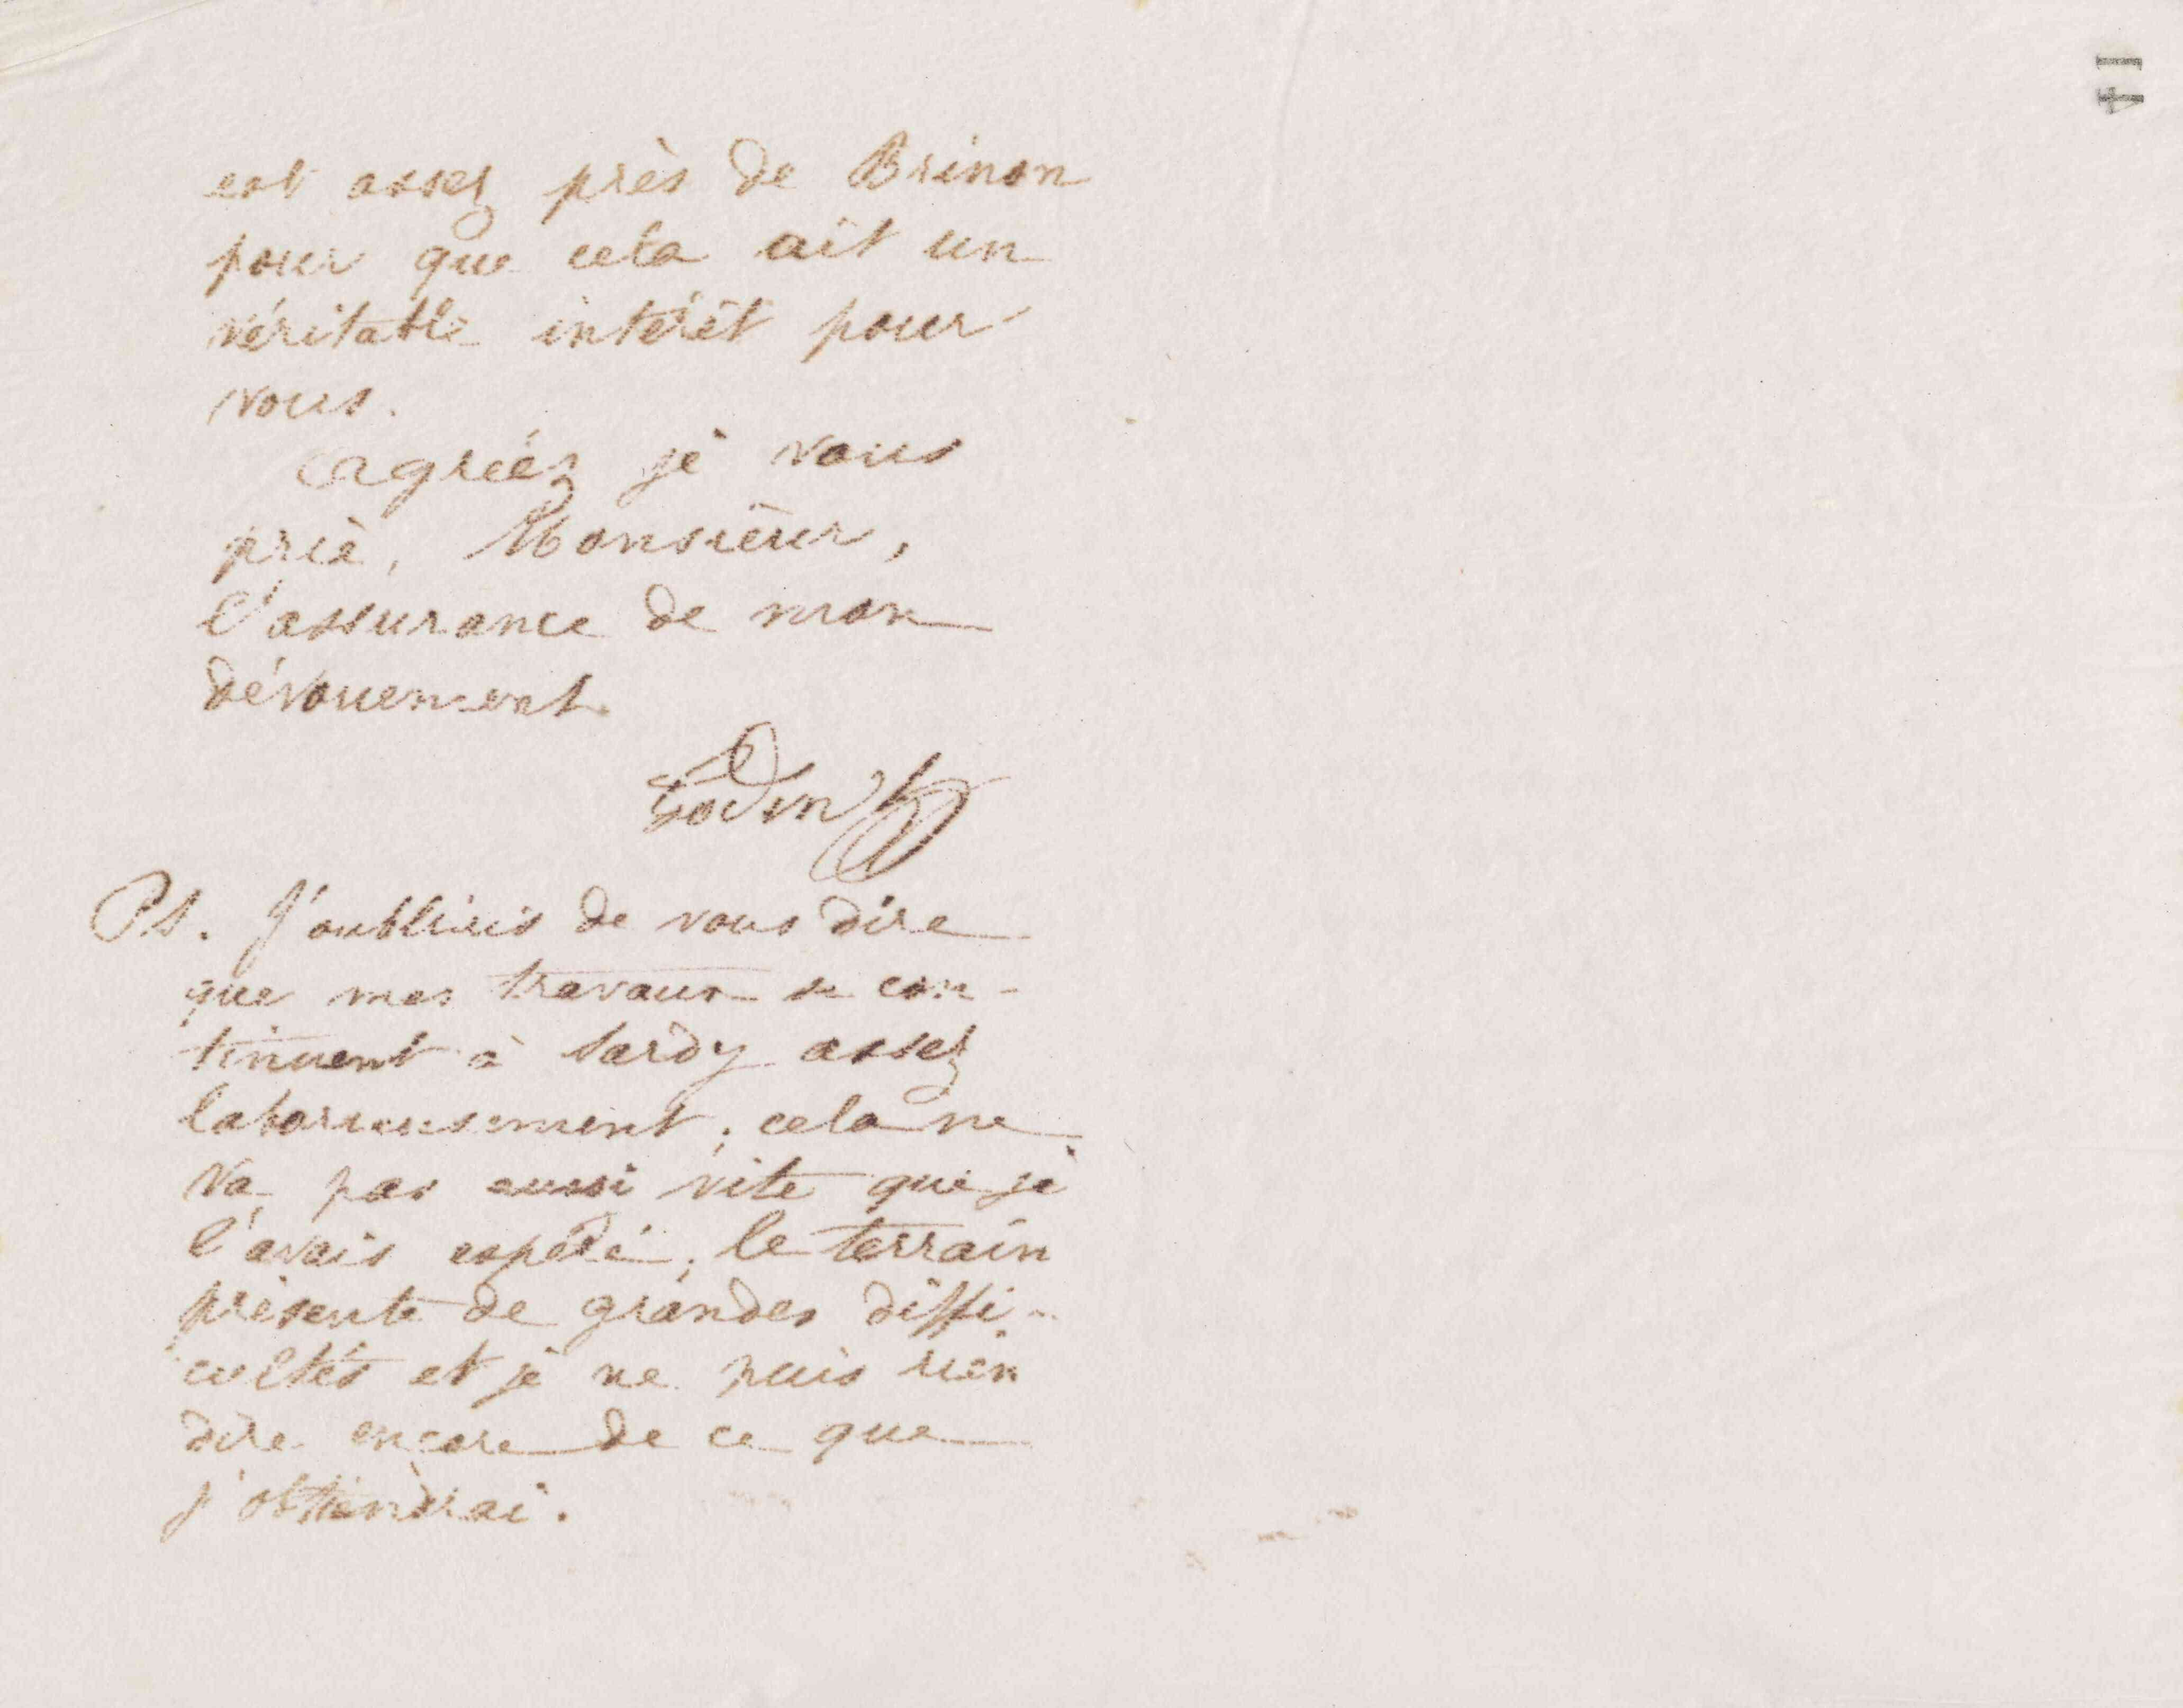 est assez près de Brinon
pour que cela ait un
véritable intérêt pour
vous.
Agréez je vous
prie, Monsieur,
l'assurance de mon
dévouement.
Godin
Ps. J'oubliais de vous dire
que mes travaux se con-
tinuent à Sardy assez
laborieusement ; cela ne
va pas aussi vite que je
l'avais espéré ; le terrain
présente de grandes diffi-
cultés et je ne puis rien
dire encore de ce que
j'obtiendrai.
14